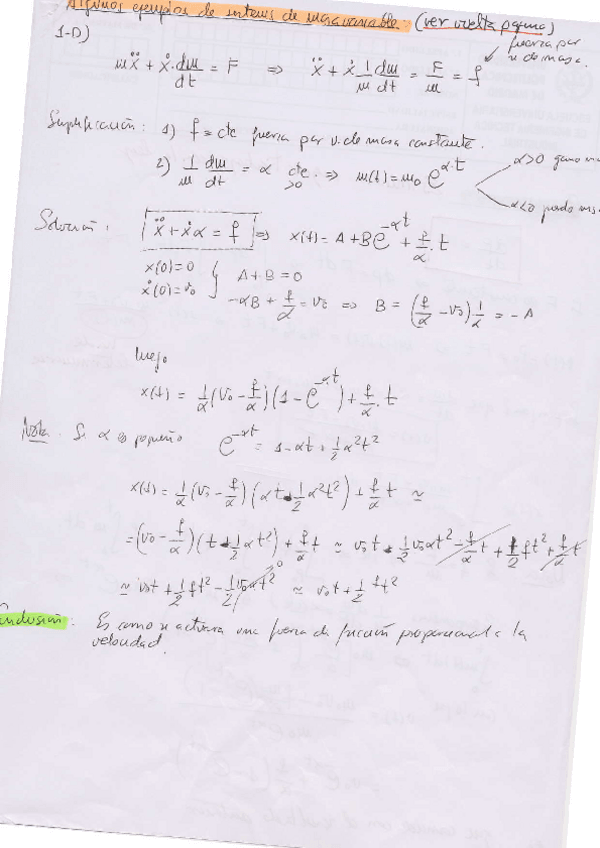 Algunos ejemplos de sistemas de masa variable. (ver vuelta página)
1-D)
mẍ + ẋ·dm/dt = F ⇒ ẍ + ẋ 1/m dm/dt = F/m = f
fuerza por
u de masa.
Simplificación: 1) f = cte fuerza por u. de masa constante.
2) 1/m dm/dt = α cte >0 ⇒ m(t) = m₀ e^(α·t)
α>0 gano m
α<0 pierdo mas
Solución: ẍ + ẋα = f ⇒ x(t) = A + Be^(-αt) + f/α · t
x(0) = 0
ẋ(0) = v₀
A + B = 0
-αB + f/α = v₀ ⇒ B = (f/α - v₀) 1/α = -A
luego
x(t) = 1/α (v₀ - f/α)(1 - e^(-αt)) + f/α · t
Nota. Si α es pequeño e^(-αt) = 1 - αt + 1/2 α²t²
x(t) = 1/α (v₀ - f/α)(αt - 1/2 α²t²) + f/α t ≃
= (v₀ - f/α)(t - 1/2 αt²) + f/α t ≃ v₀t - 1/2 v₀αt² - f/α t + 1/2 ft² + f/α t
≃ v₀t + 1/2 ft² - 1/2 v₀αt² →0 ≃ v₀t + 1/2 ft²
onclusión: Es como si actuara una fuerza de fricción proporcional a la
velocidad.